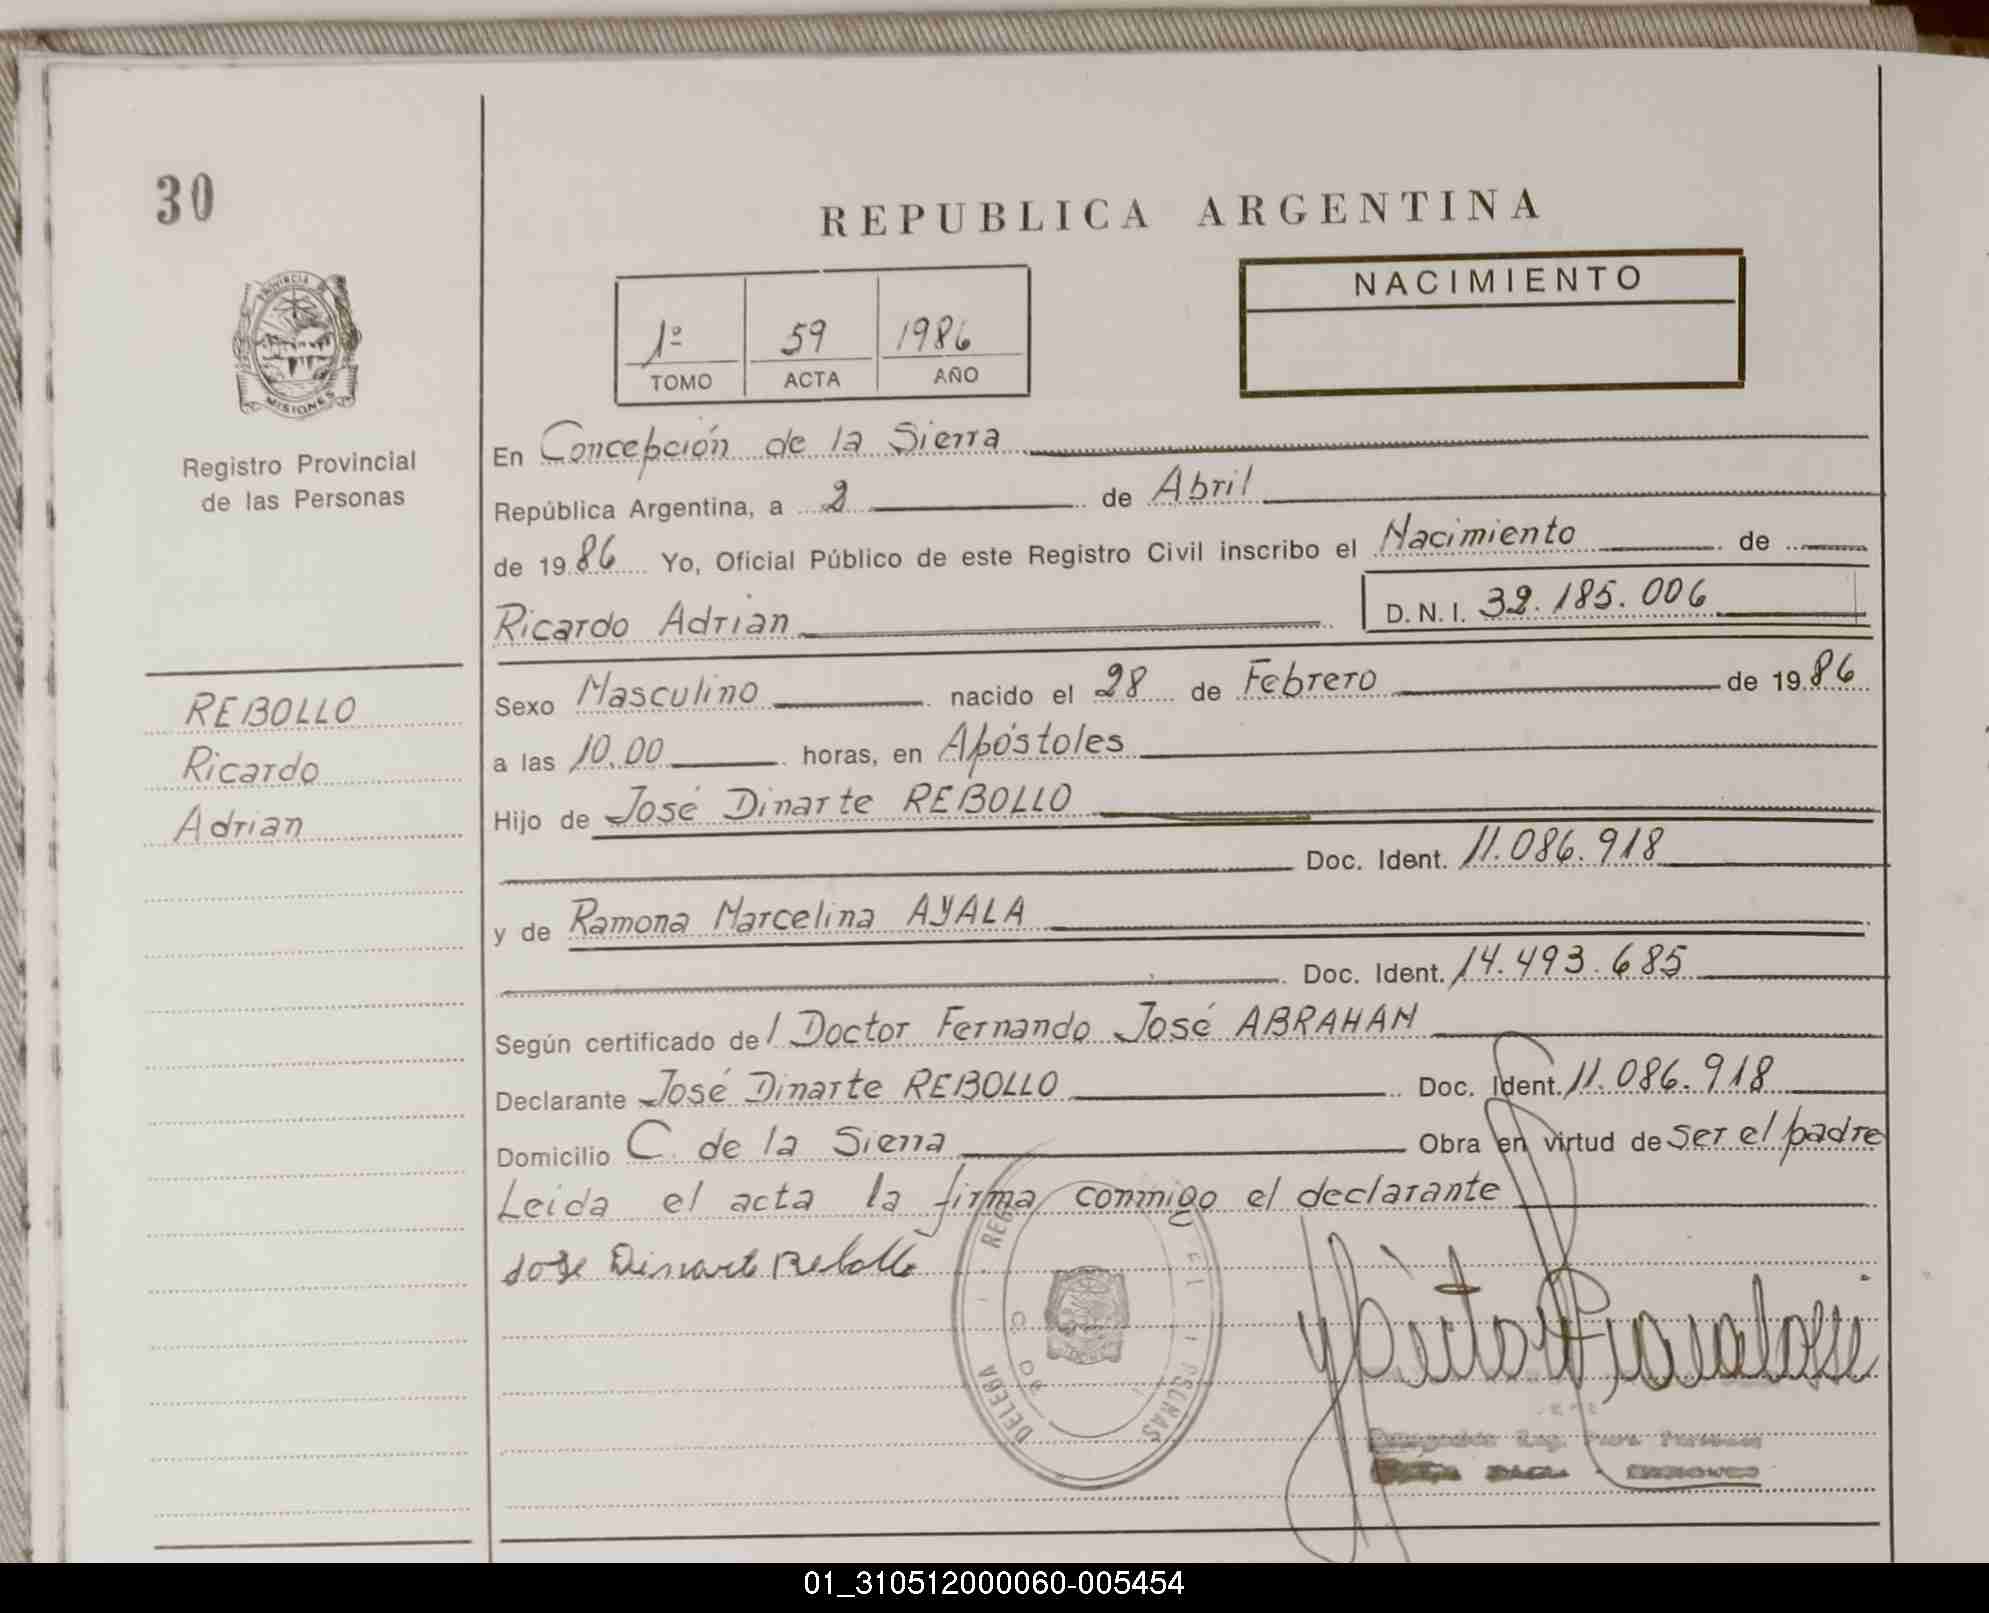 30
REPUBLICA ARGENTINA
NACIMIENTO
1º 59 1986
TOMO ACTA AÑO
PROVINCIA DE
MISIONES
Registro Provincial
de las Personas
En Concepción de la Sierra
República Argentina, a 2 de Abril
de 1986 Yo, Oficial Público de este Registro Civil inscribo el Nacimiento de
Ricardo Adrian D.N.I. 32.185.006
REBOLLO
Ricardo
Adrian
Sexo Masculino nacido el 28 de Febrero de 1986
a las 10.00 horas, en Apóstoles
Hijo de José Dinarte REBOLLO
Doc. Ident. 11.086.918
y de Ramona Marcelina AYALA
Doc. Ident. 14.493.685
Según certificado del Doctor Fernando José ABRAHAM
Declarante José Dinarte REBOLLO Doc. Ident. 11.086.918
Domicilio C. de la Sierra Obra en virtud de ser el padre
Leida el acta la firma conmigo el declarante
Jose Dinarte Rebollo
01_310512000060-005454